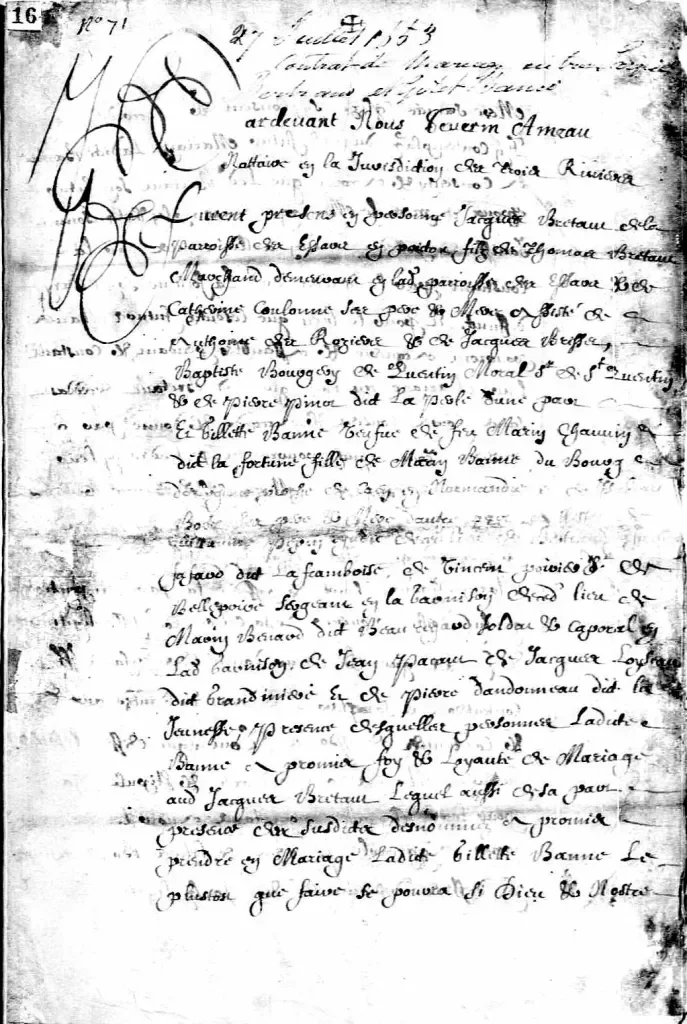 16
N° 71
27 Juillet 1653
Contrat de Mariage entre
Bertrand et
ardevant Nous Severin Ameau
Nottaire en la Jurisdiction des trois Rivieres
furent presens en personne Jacques Bretaut de la
Parroisse des Essars en poictou filz de Thomas Bretaut
Marchand demeurant en lad parroisse des Essars & de
Catherine Coulonne ses pere & Mere Assisté de
Anthoine des Roziers & de Jacques Brisset,
Baptiste Bourgery de Quentin Moral Sr de St Quentin
& de Pierre Pinot dit La Perle dune part
Et Gillette Banne Veufue de feu Marin Chauuin
dit la fortune fille de Marin Banne du Bourg
proche de Caen en Normandie & de
ses pere & Mere dautre part
de Bertrand
fafard dit Laframboise, de Vincent poirier dt de
Bellepoire Sergeant en la Garnison dud lieu de
Marin Benard dit Beau regard Soldat & Caporal en
Lad Garnison, de Jean Paquin de Jacques Loyseau
dit Grandiniere Et de Pierre dandonneau dit la
Jeunesse, Presence desquelles personnes Ladite
Banne a promier foy & Loyauté de Mariage
aud Jacques Bretaut Lequel aussi de sa part
presence des susdites desnommés a promier
prendre en Mariage Ladite Gillette Banne Le
plustost que faire se pourra si Dieu & Nostre